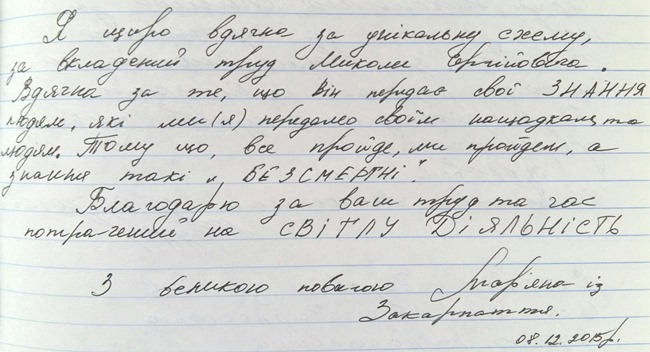 Я щиро вдячна за унікальну схему,
за вкладений труд Миколи Сергійовича.
Вдячна за те, що він передає свої ЗНАННЯ
людям, які ми(я) передамо своїм нащадкам та
людям. Тому що, все пройде, ми пройдем, а
знання такі „БЕЗСМЕРТНІ".
Благодарю за ваш труд та час
потрачений на СВІТЛУ ДІЯЛЬНІСТЬ
З великою повагою Мар'яна із
Закарпаття.
08.12.2015р.